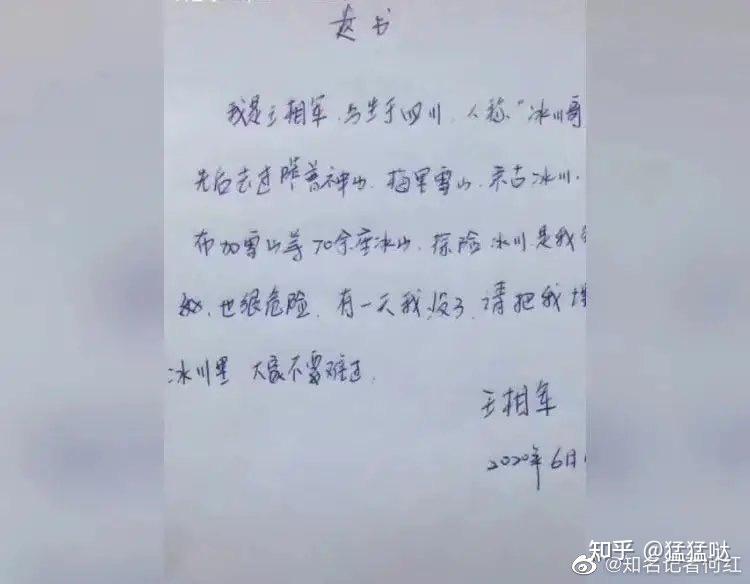 遗书
我是王相军，出生于四川，人称“冰川哥
先后去过 神山，梅里雪山，来古冰川、
布加雪山等70余座冰山，探险冰川是我
也很危险，有一天我没了，请把我埋
冰川里 大家不要难过，
王相军
2020年6月
知乎 @猛猛哒
@知名记者何红